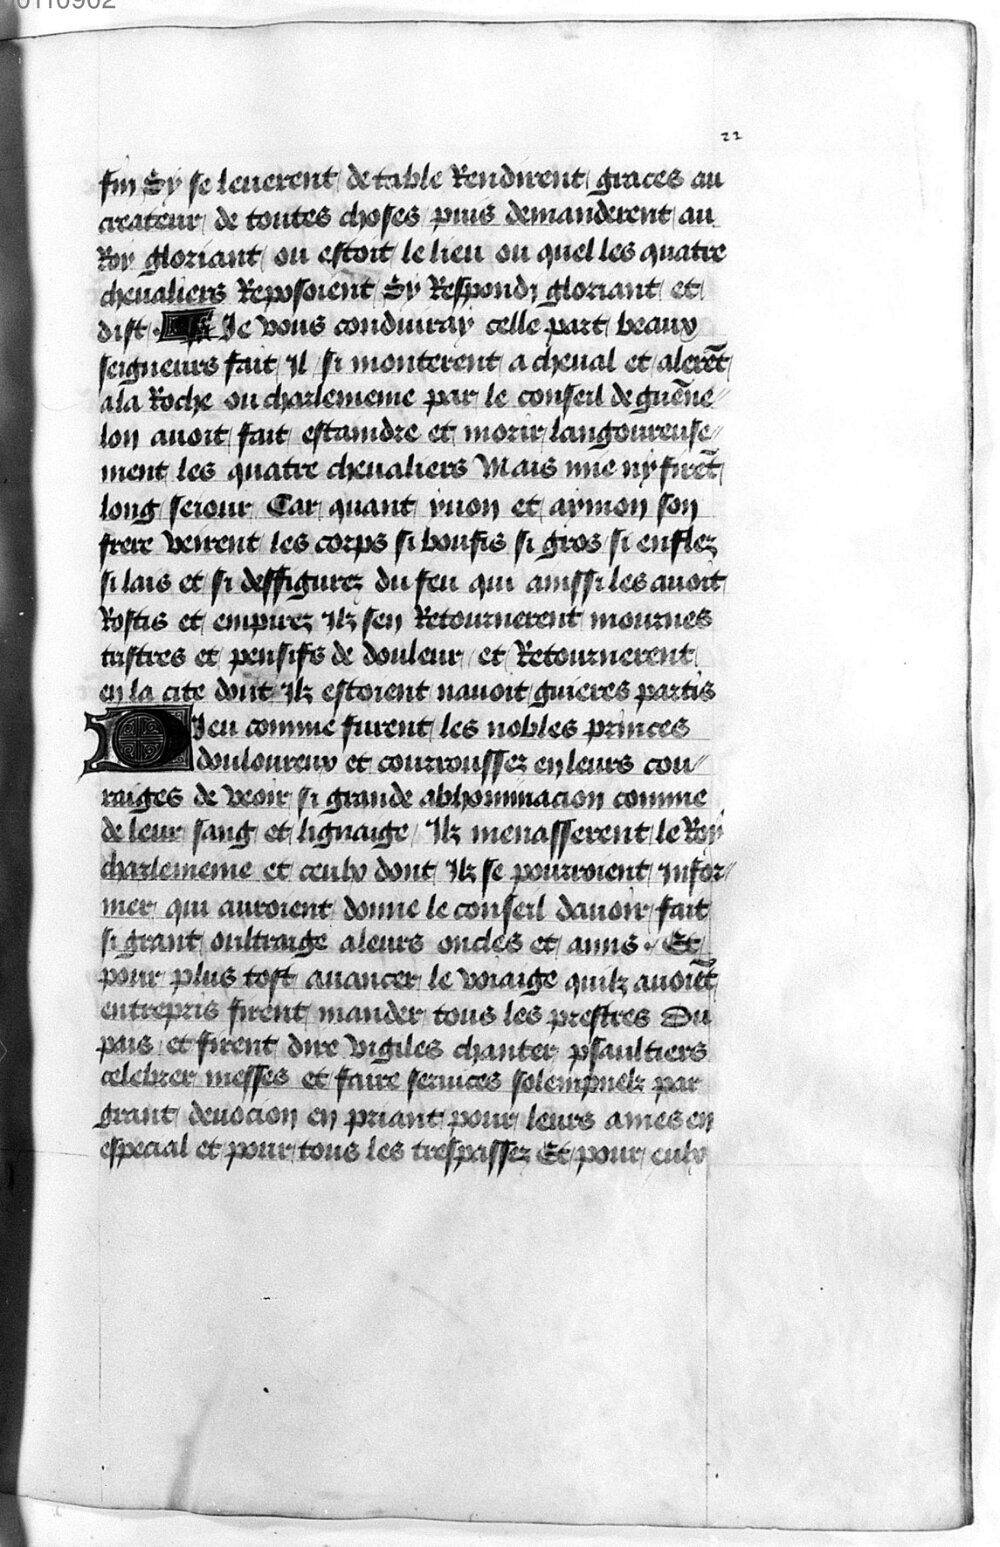 22
fin Sy se leuerent de table Rendirent graces au
createur de toutes choses puis demanderent au
Roy gloriant ou estoit le lieu ou quel les quatre
cheualiers Reposoient Sy Respondi gloriant et
dist. Je vous conduiray celle part beaux
seigneurs fait Il si monterent a cheual et alerẽt
ala Roche ou charlemeine par le conseil de guẽne
lon auoit fait estaindre et morir langoureuse
ment les quatre cheualiers Mais mie ny firẽt
long seiour Car quant yuon et aymon son
frere veirent les corps si boufis si gros si enflez
si lais et si deffigurez du feu qui ainssi les auoit
Rostis et empirez Ilz sen Retournerent mournes
tristres et pensifs de douleur et Retournerent
en la cite dont Ilz estoient nauoit guieres partis
Dieu comme furent les nobles princes
douloureux et courroussez en leurs cou
raiges de veoir si grande abhominacion comme
de leur sang et lignaige Ilz menasserent le Roy
charlemeine et ceulx dont Ilz se pourroient Infor
mer qui auroient donne le conseil dauoir fait
si grant oultraige aleurs oncles et amis. Et
pour plus tost auancer le voiaige quilz auoiẽt
entrepris firent mander tous les prestres Du
pais et firent dire vigiles chanter psaultiers
celebrer messes et faire seruices solempnelz par
grant deuocion en priant pour leurs ames en
especial et pour tous les trespassez Et pour eulx